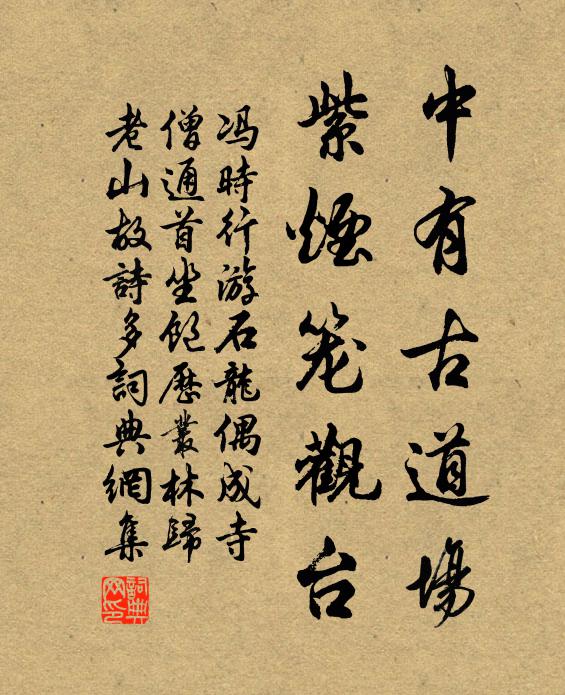 中有古道場
紫煙笼觀台
冯時行游石龍偶成寺
僧通首坐飽歷叢林歸
老山故詩多詞典網集
詞典
网印